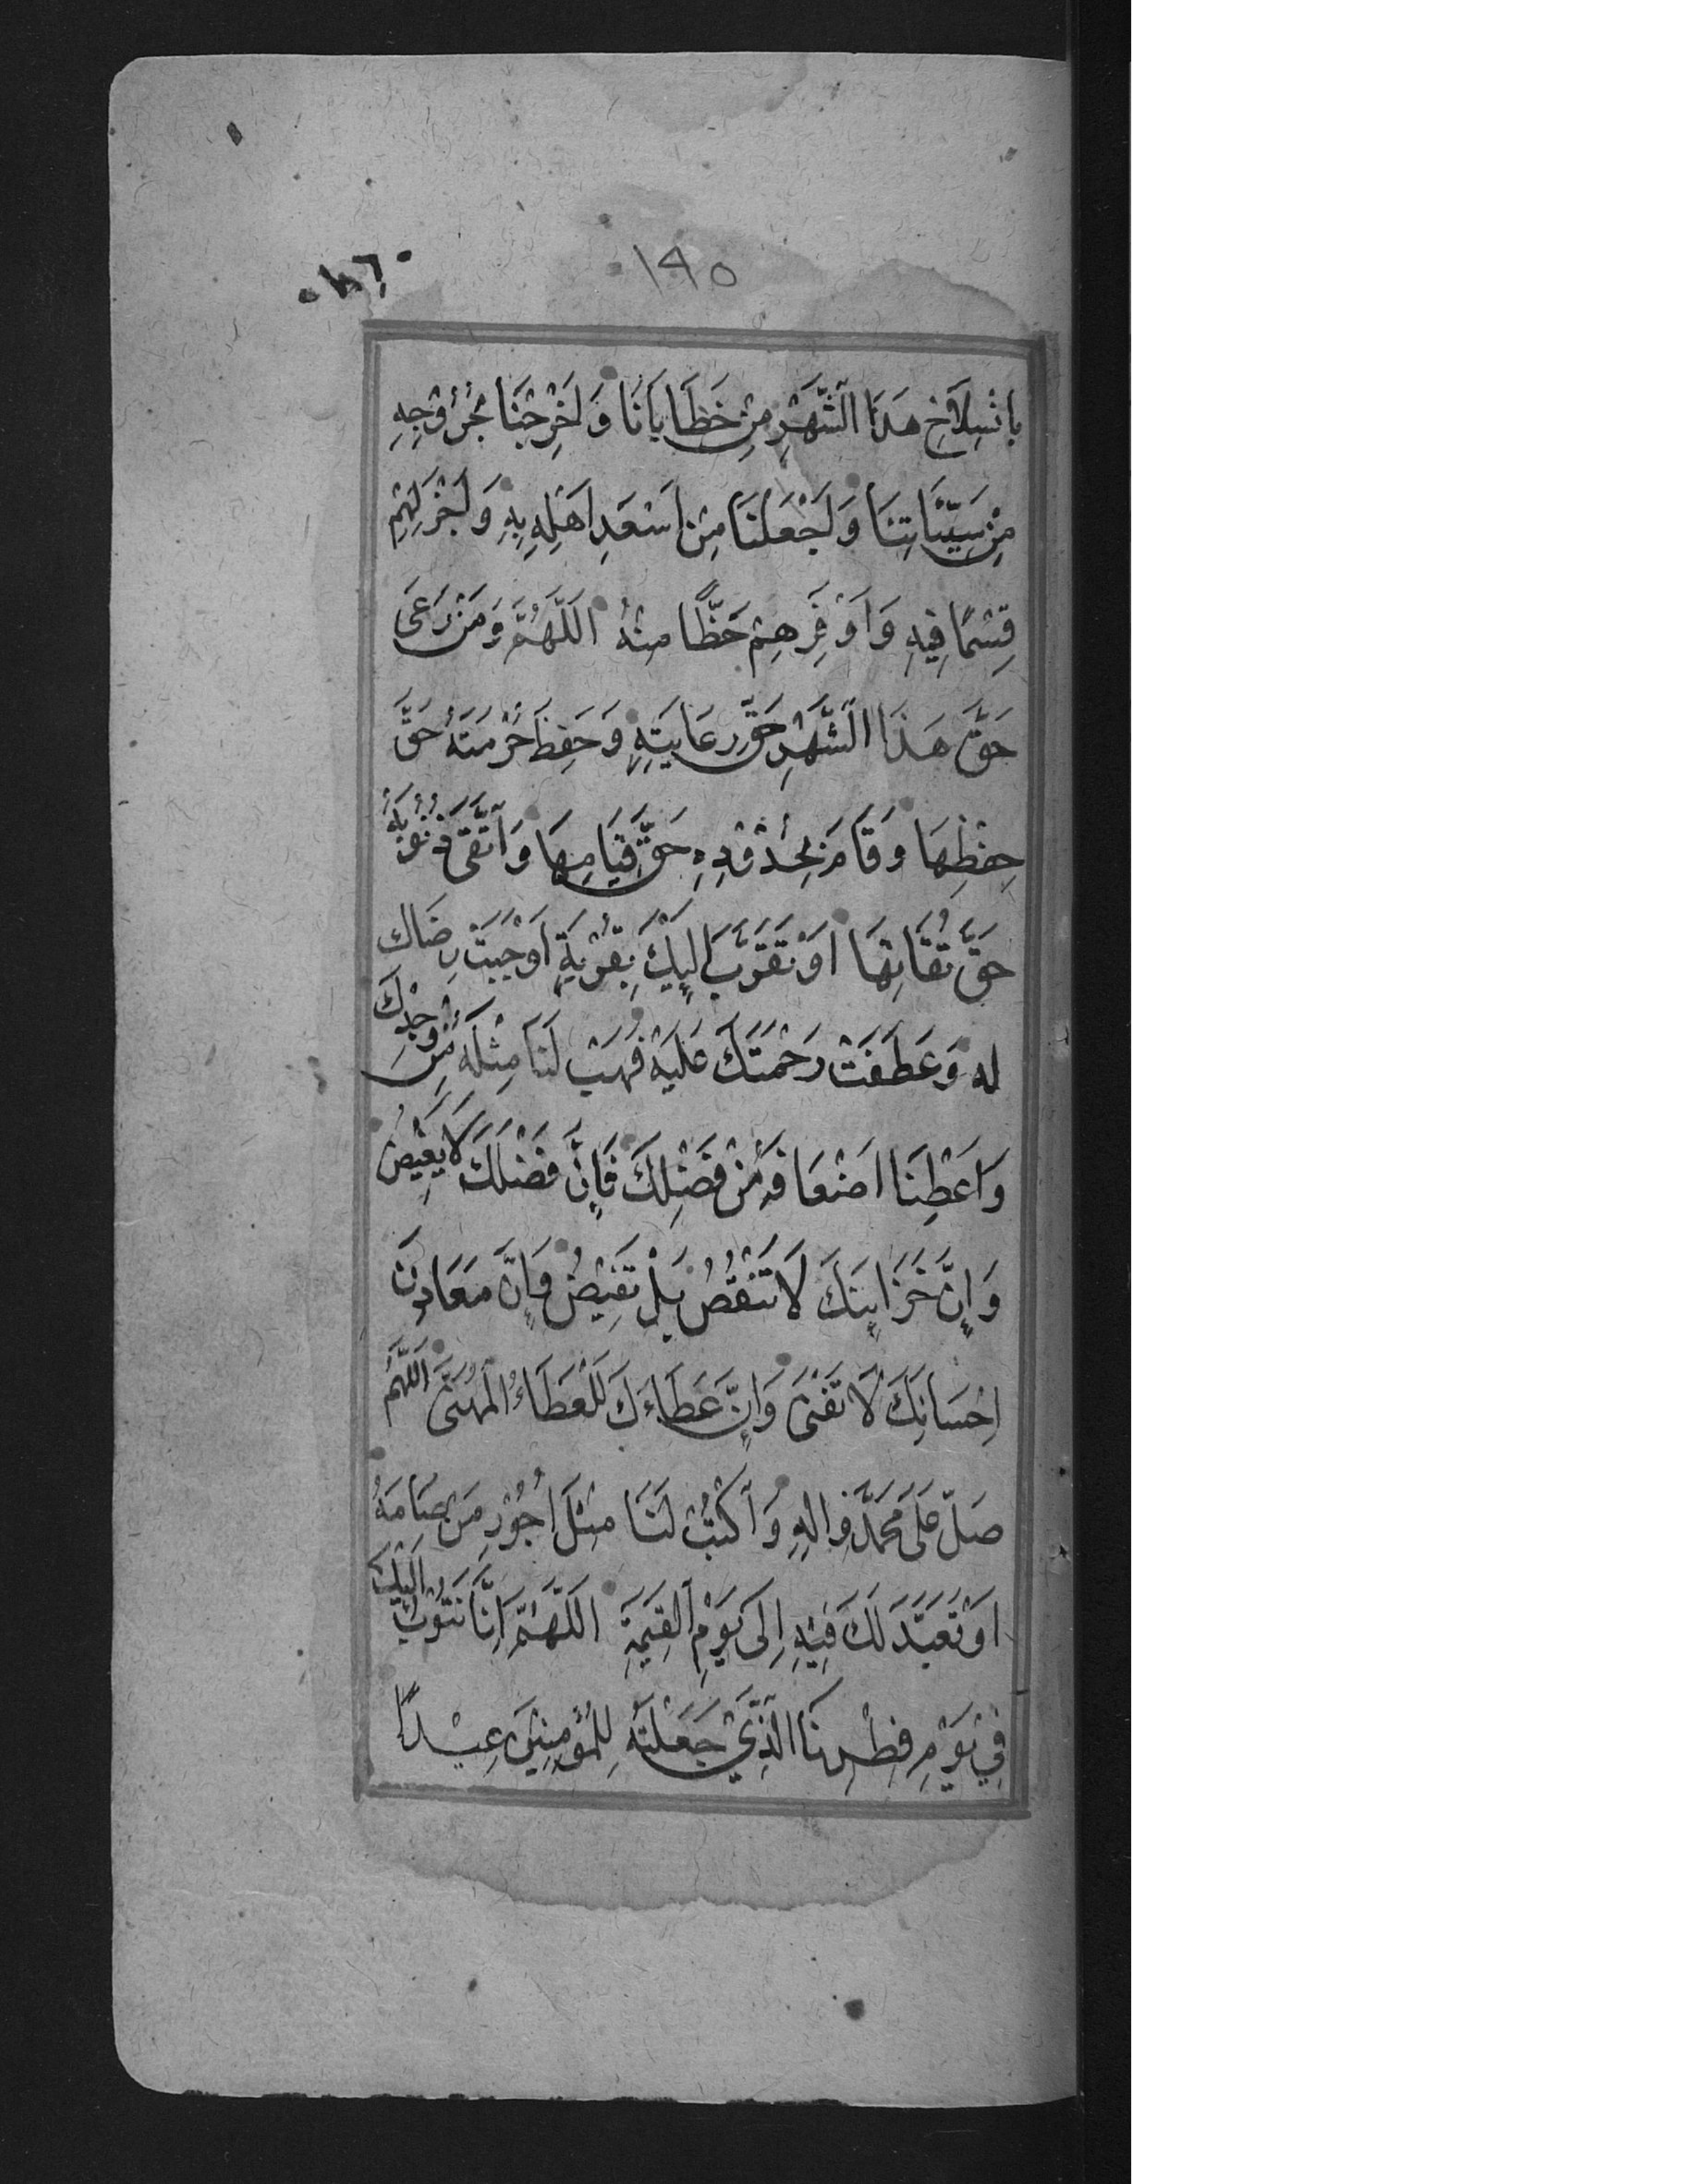 ١٩٥
بِانْسِلَاخِ هَذَا الشَّهْرِ مِنْ خَطَايَانَا وَاَخْرِجْنَا بِخُرُوْجِهِ
مِنْ سَيِّئَاتِنَا وَاجْعَلْنَا مِنْ اَسْعَدِ اَهْلِهِ بِهِ وَاَجْزَلِهِمْ
قِسْمًا فِيْهِ وَاَوْفَرِهِمْ حَظًّا مِنْهُ اَللّٰهُمَّ وَمَنْ رَعَى
حَقَّ هَذَا الشَّهْرِ حَقَّ رِعَايَتِهِ وَحَفِظَ حُرْمَتَهُ حَقَّ
حِفْظِهَا وَقَامَ بِحُدُوْدِهِ حَقَّ قِيَامِهَا وَاتَّقَى ذُنُوْبَهُ
حَقَّ تُقَاتِهَا اَوْ تَقَرَّبَ اِلَيْكَ بِقُرْبَةٍ اَوْجَبَتْ رِضَاكَ
لَهُ وَعَطَفَتْ رَحْمَتَكَ عَلَيْهِ فَهَبْ لَنَا مِثْلَهُ مِنْ وُجْدِكَ
وَاَعْطِنَا اَضْعَافَهُ مِنْ فَضْلِكَ فَاِنَّ فَضْلَكَ لَا يَغِيْضُ
وَاِنَّ خَزَايِنَكَ لَا تَنْقُصُ بَلْ تَفِيْضُ وَاِنَّ مَعَادِنَ
اِحْسَانِكَ لَا تَفْنَى وَاِنَّ عَطَاءَكَ لَلْعَطَاءُ الْمُهَنَّى اَللّٰهُمَّ
صَلِّ عَلَى مُحَمَّدٍ وَاٰلِهِ وَاكْتُبْ لَنَا مِثْلَ اُجُوْرِ مَنْ صَامَهُ
اَوْ تَعَبَّدَ لَكَ فِيْهِ اِلَى يَوْمِ الْقِيٰمَةِ اَللّٰهُمَّ اِنَّا نَتُوْبُ اِلَيْكَ
فِيْ يَوْمِ فِطْرِنَا الَّذِيْ جَعَلْتَهُ لِلْمُؤْمِنِيْنَ عِيْدًا